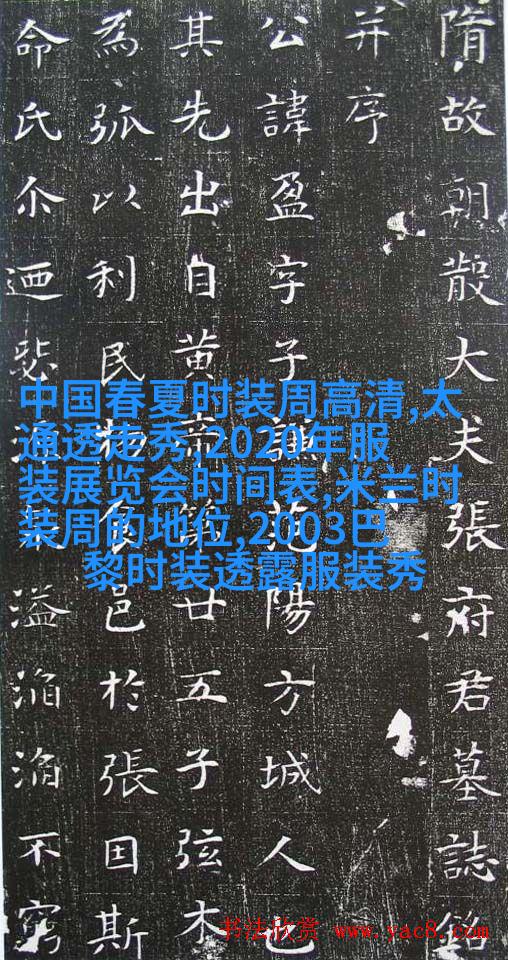 隋故朝散大夫張府君墓誌銘
并序
公諱盈字子范陽方城人也
其先出自黄帝第廿五子弦木
為弧以利民物食邑於張因斯
命氏尒迺溢滔滔不窮
中国春夏时装周高清,太
通透走秀,2020年服
装展览会时间表,米兰时
装周的地位,2003巴
黎时装透露服装秀
书法欣赏 www.yac8.com